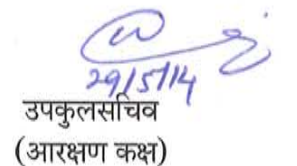 29/5/14
उपकुलसचिव
(आरक्षण कक्ष)